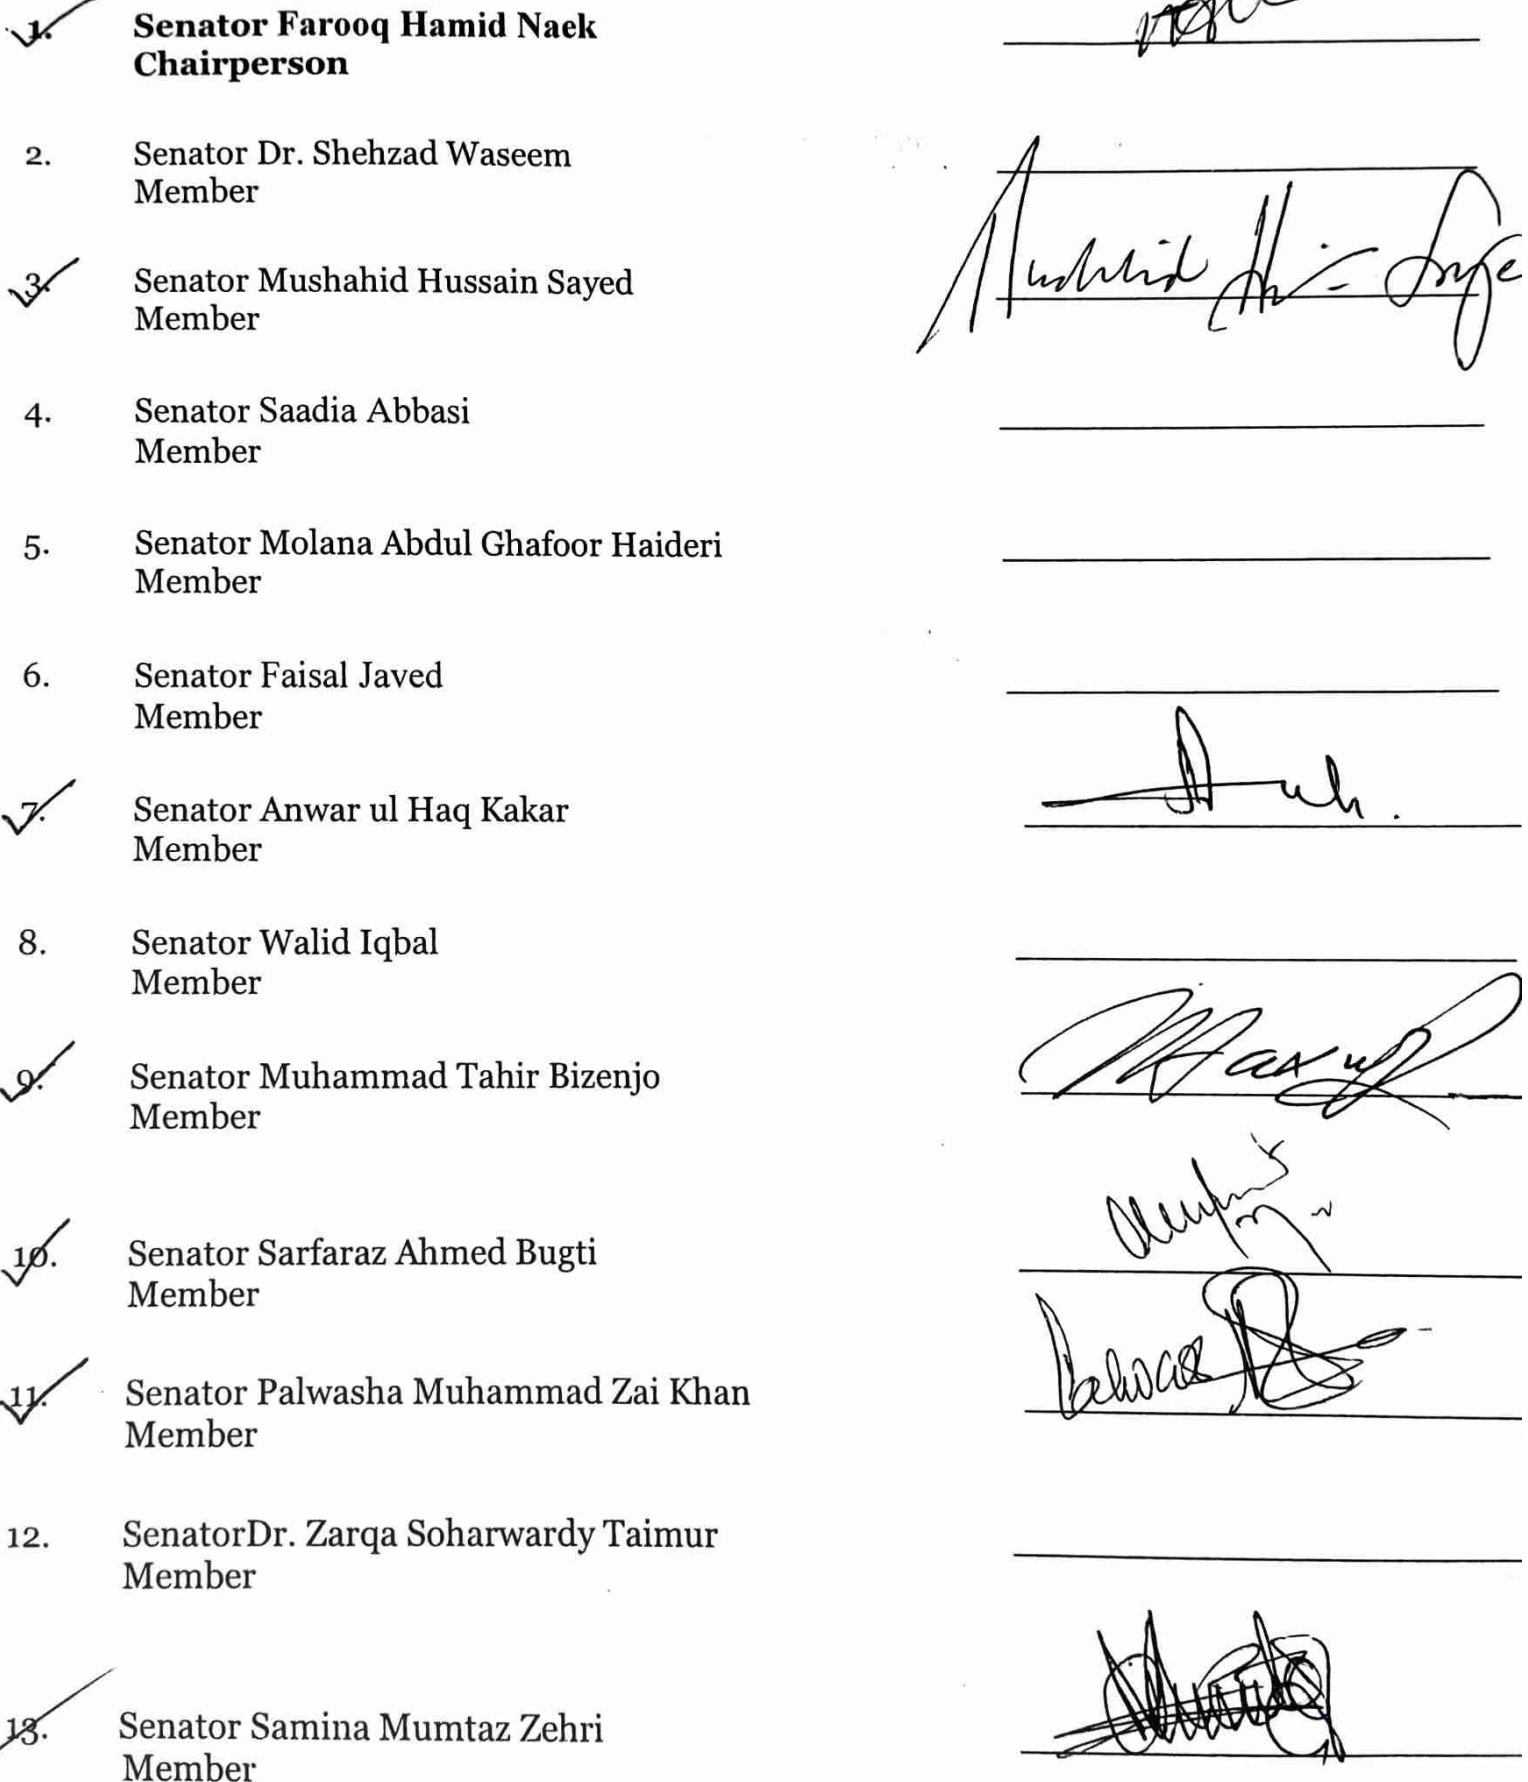 1. Senator Farooq Hamid Naek
Chairperson
2. Senator Dr. Shehzad Waseem
Member
3. Senator Mushahid Hussain Sayed
Member
Mushahid Hussain Sayed
4. Senator Saadia Abbasi
Member
5. Senator Molana Abdul Ghafoor Haideri
Member
6. Senator Faisal Javed
Member
7. Senator Anwar ul Haq Kakar
Member
8. Senator Walid Iqbal
Member
9. Senator Muhammad Tahir Bizenjo
Member
10. Senator Sarfaraz Ahmed Bugti
Member
11. Senator Palwasha Muhammad Zai Khan
Member
12. SenatorDr. Zarqa Soharwardy Taimur
Member
13. Senator Samina Mumtaz Zehri
Member